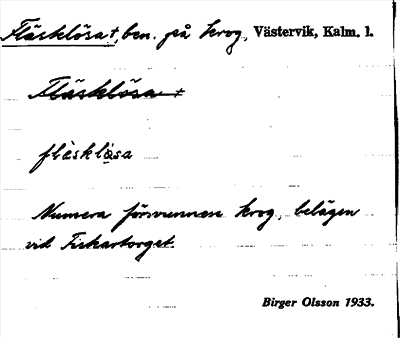 Fläsklösa †, ben. på krog, Västervik, Kalm. l.
Fläsklösa †
flàsklǫsa
Numera försvunnen krog, belägen
vid Fiskartorget.
Birger Olsson 1933.